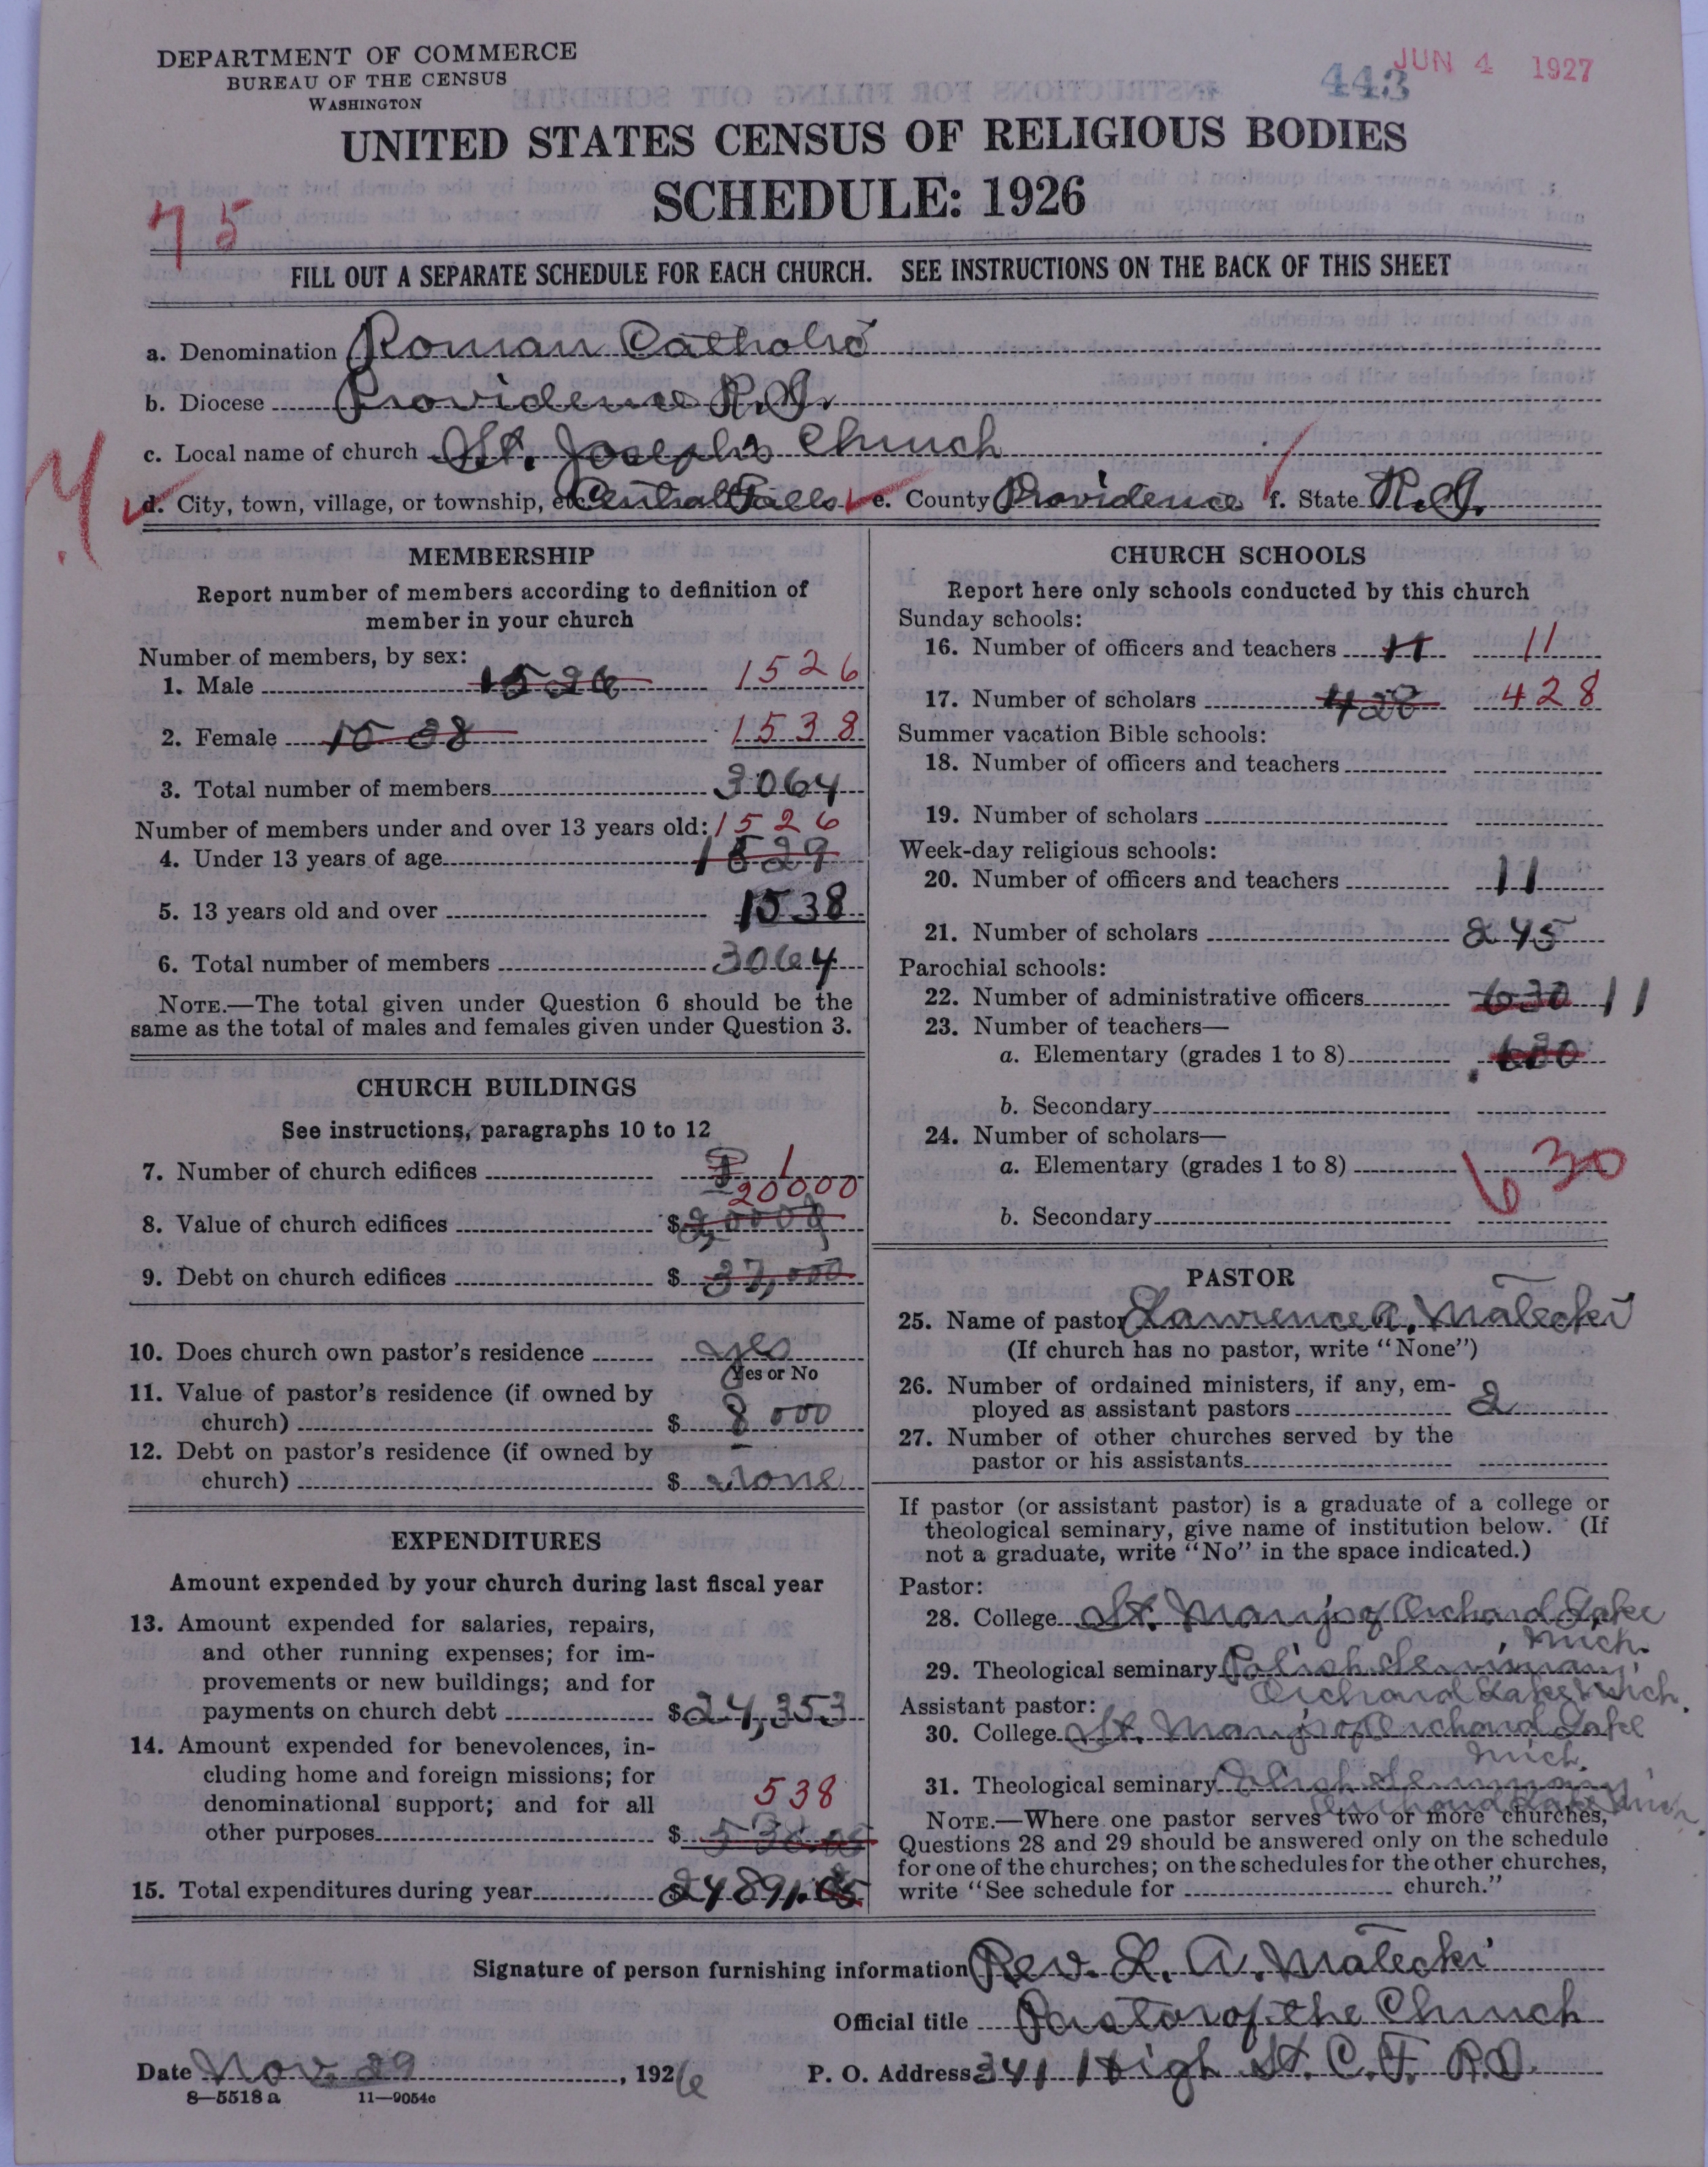 DEPARTMENT OF COMMERCE
BUREAU OF THE CENSUS
WASHINGTON
443
JUN 4 1927
UNITED STATES CENSUS OF RELIGIOUS BODIES
SCHEDULE: 1926
75
FILL OUT A SEPARATE SCHEDULE FOR EACH CHURCH. SEE INSTRUCTIONS ON THE BACK OF THIS SHEET
a. Denomination Roman Catholic
b. Diocese Providence R.I.
c. Local name of church St. Joseph's Church
d. City, town, village, or township, etc Central Falls e. County Providence f. State R.I.
MEMBERSHIP
Report number of members according to definition of
member in your church
Number of members, by sex:
1. Male 1526 1526
2. Female 1538 1538
3. Total number of members 3064
Number of members under and over 13 years old: 1526
4. Under 13 years of age 1529
5. 13 years old and over 1538
6. Total number of members 3064
NOTE.—The total given under Question 6 should be the
same as the total of males and females given under Question 3.
CHURCH BUILDINGS
See instructions, paragraphs 10 to 12
7. Number of church edifices 1
20000
8. Value of church edifices $
9. Debt on church edifices $ 37,000
10. Does church own pastor's residence yes
Yes or No
11. Value of pastor's residence (if owned by
church) $ 8000
12. Debt on pastor's residence (if owned by
church) $ none
EXPENDITURES
Amount expended by your church during last fiscal year
13. Amount expended for salaries, repairs,
and other running expenses; for im-
provements or new buildings; and for
payments on church debt $24,353
14. Amount expended for benevolences, in-
cluding home and foreign missions; for
denominational support; and for all 538
other purposes $ 538.05
15. Total expenditures during year 24891.05
CHURCH SCHOOLS
Report here only schools conducted by this church
Sunday schools:
16. Number of officers and teachers 11 11
17. Number of scholars 428 428
Summer vacation Bible schools:
18. Number of officers and teachers
19. Number of scholars
Week-day religious schools:
20. Number of officers and teachers 11
21. Number of scholars 245
Parochial schools:
22. Number of administrative officers 630 11
23. Number of teachers—
a. Elementary (grades 1 to 8)
b. Secondary
24. Number of scholars—
a. Elementary (grades 1 to 8) 630
b. Secondary
PASTOR
25. Name of pastor Lawrence A. Malecki
(If church has no pastor, write "None")
26. Number of ordained ministers, if any, em-
ployed as assistant pastors 2
27. Number of other churches served by the
pastor or his assistants
If pastor (or assistant pastor) is a graduate of a college or
theological seminary, give name of institution below. (If
not a graduate, write "No" in the space indicated.)
Pastor:
28. College St. Mary's of Orchard Lake
Mich.
29. Theological seminary Polish Seminary,
Orchard Lake Mich.
Assistant pastor:
30. College St. Mary's of Orchard Lake
Mich.
31. Theological seminary Polish Seminary
Orchard Lake Mich.
NOTE.—Where one pastor serves two or more churches,
Questions 28 and 29 should be answered only on the schedule
for one of the churches; on the schedules for the other churches,
write "See schedule for church."
Signature of person furnishing information Rev. L. A. Malecki
Official title Pastor of the Church
Date Nov. 29, 1926 P. O. Address 341 High St. C.F. R.I.
8—5518 a 11—9054c